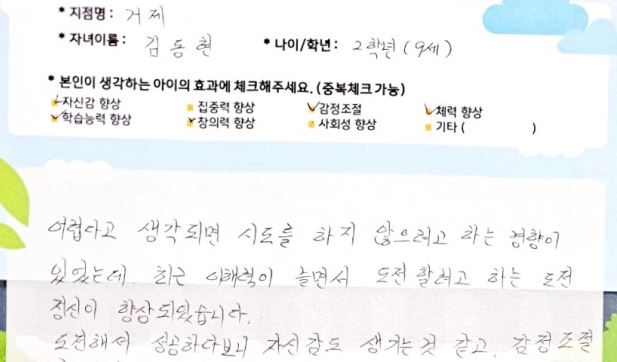 * 지점명 : 거제
* 자녀이름 : 김동현 * 나이/학년 : 2학년 (9세)
* 본인이 생각하는 아이의 효과에 체크해주세요. (중복체크 가능)
자신감 향상 집중력 향상 감정조절 체력 향상
학습능력 향상 창의력 향상 사회성 향상 기타 ( )
어렵다고 생각되면 시도를 하지 않으려고 하는 경향이
있었는데. 최근 이해력이 늘면서 도전할려고 하는 도전
정신이 향상되었습니다.
도전해서 성공하다보니 자신감도 생기는것 같고, 감정조절